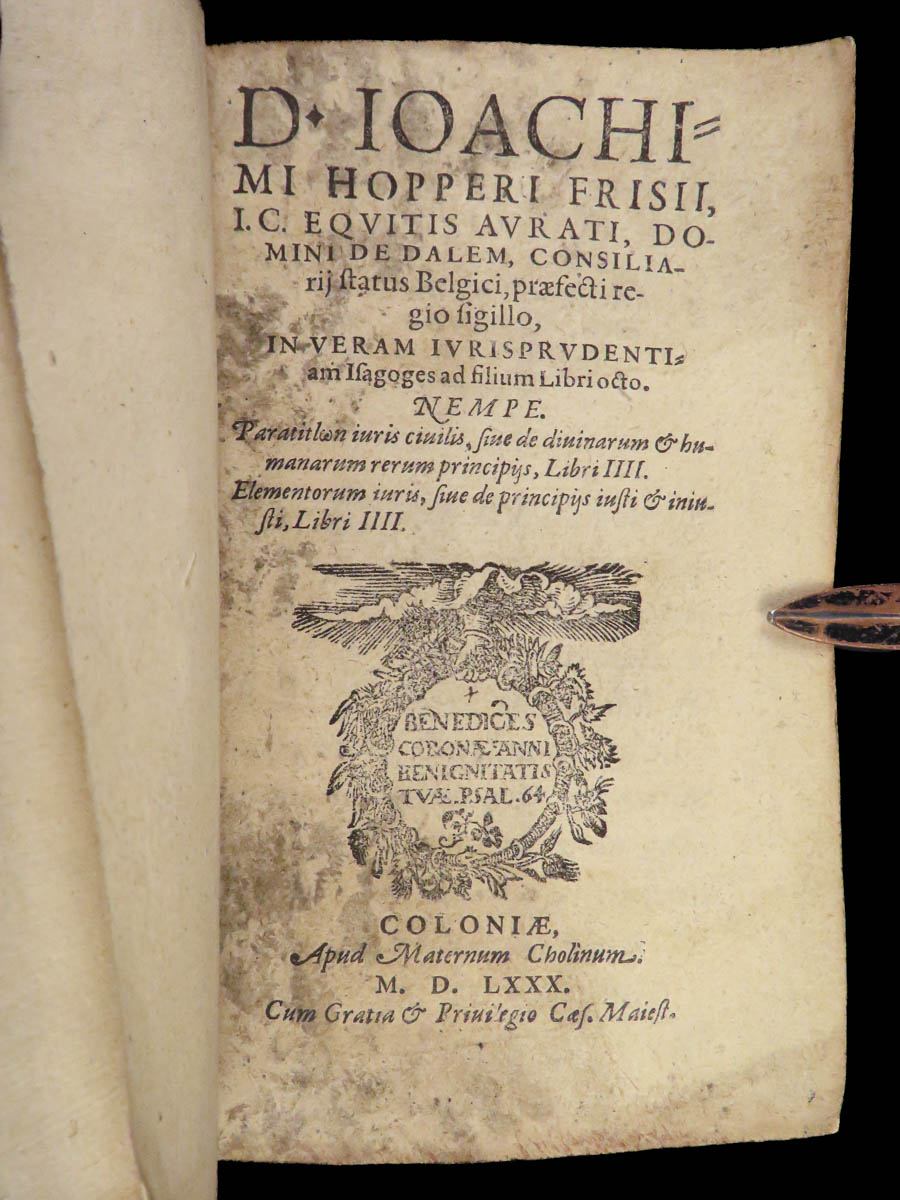 D· IOACHI=
MI HOPPERI FRISII,
I.C. EQVITIS AVRATI, DO-
MINI DE DALEM, CONSILIA-
rij ſtatus Belgici, præfecti re-
gio ſigillo,
IN VERAM IVRISPRVDENTI=
am Iſagoges ad filium Libri octo.
NEMPE.
Paratitlωn iuris ciuilis, ſiue de diuinarum & hu-
manarum rerum principijs, Libri IIII.
Elementorum iuris, ſiue de principijs iuſti & iniu-
ſti, Libri IIII.
BENEDICES
CORONÆ ANNI
BENIGNITATIS
TVÆ. PSAL. 64
COLONIÆ,
Apud Maternum Cholinum.
M. D. LXXX.
Cum Gratia & Priuilegio Cæſ. Maieſt.